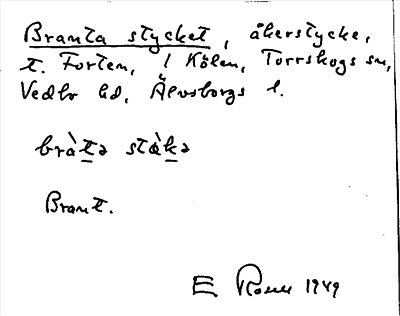 Branta stycket, åkerstycke,
t. Forten, / Kölen, Torrskogs sn,
Vedbo hd, Älvsborgs l.
bràta stàka
Brant.
E 1949